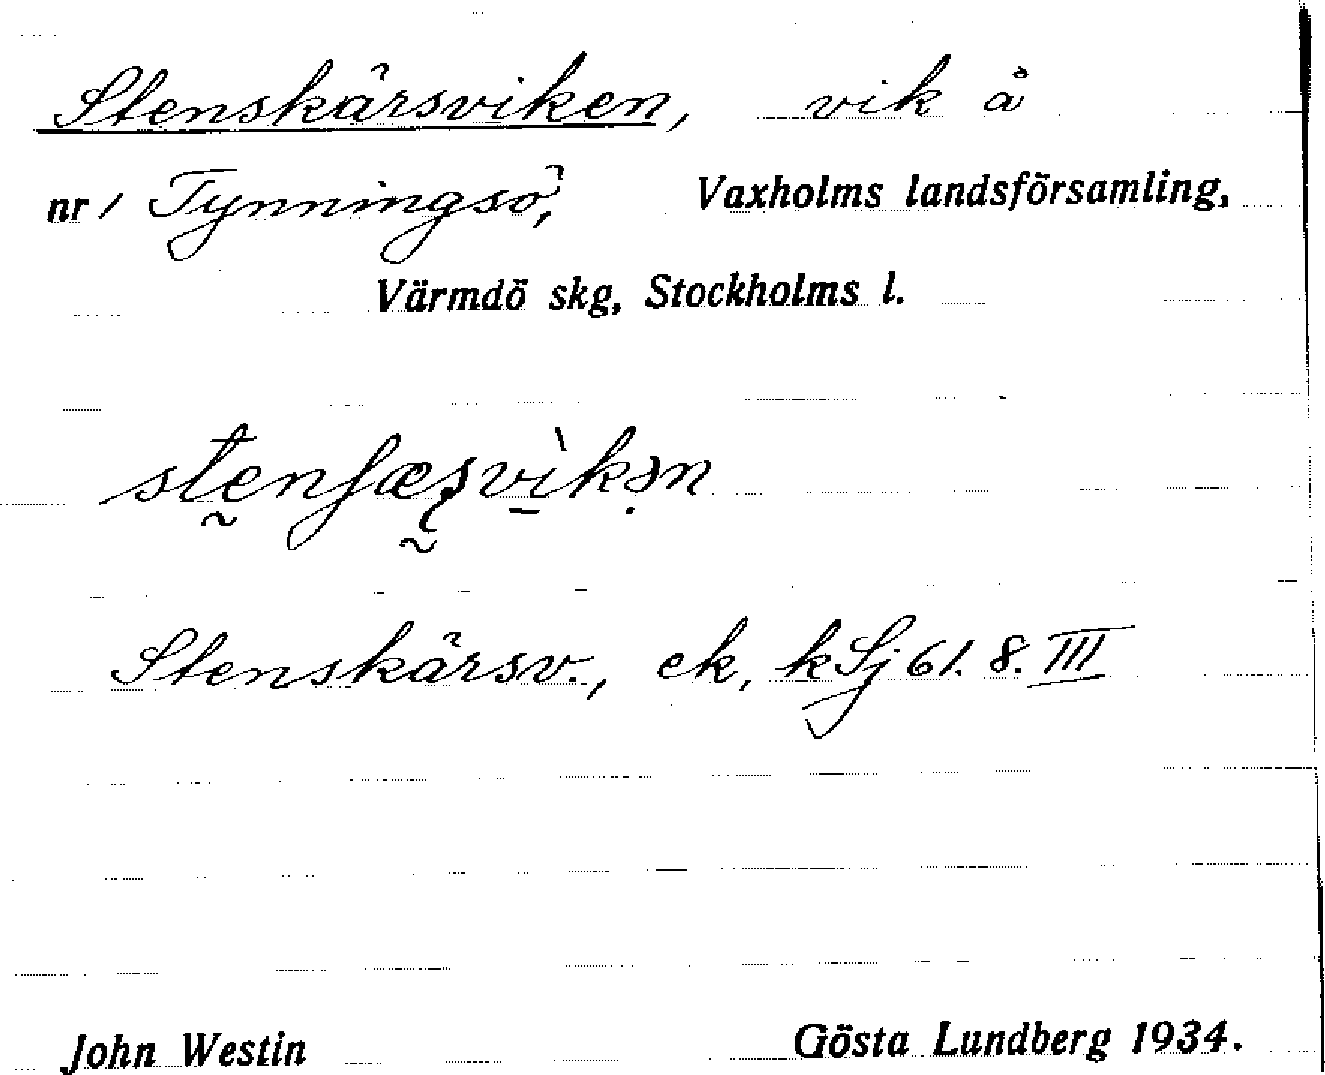 Stenskärsviken, vik å
nr 1 Tynningsö, Vaxholms landsförsamling,
Värmdö skg, Stockholms l.
Stenskärsv., ek, kSj 61. 8. III
John Westin Gösta Lundberg 1934.